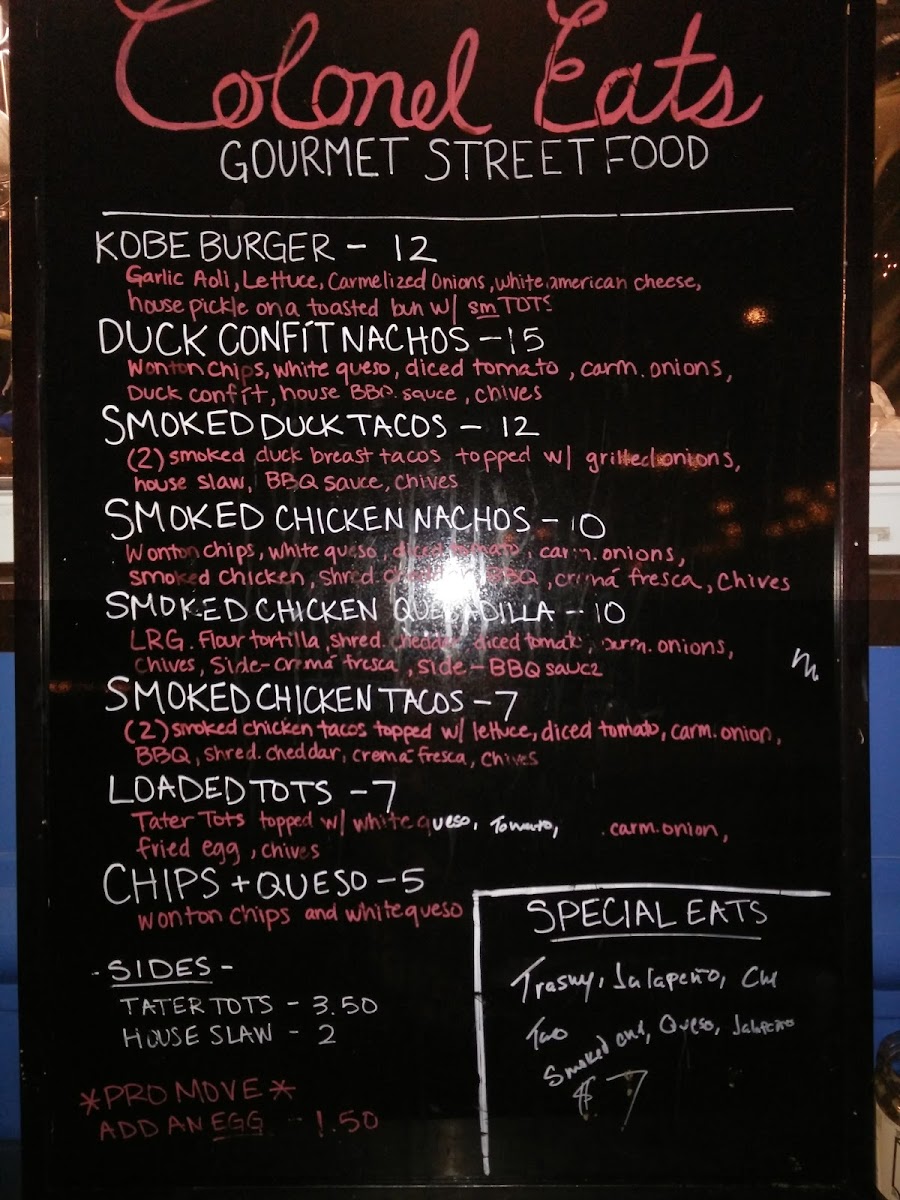 Colonel Eats
GOURMET STREET FOOD
KOBE BURGER - 12
Garlic Aoli, Lettuce, Carmelized Onions, white american cheese,
house pickle on a toasted bun w/ sm TOTS
DUCK CONFIT NACHOS - 15
Wonton chips, white queso, diced tomato, carm. onions,
Duck confit, house BBQ. sauce, chives
SMOKED DUCK TACOS - 12
(2) smoked duck breast tacos topped w/ grilled onions,
house slaw, BBQ sauce, chives
SMOKED CHICKEN NACHOS - 10
Wonton chips, white queso, diced tomato, carm. onions,
smoked chicken, shred. BBQ, cremá fresca, Chives
SMOKED CHICKEN QUESADILLA - 10
LRG. Flour tortilla, shred cheddar, diced tomato, carm. onions,
chives, Side-cremá fresca, side-BBQ sauce
SMOKED CHICKEN TACOS - 7
(2) smoked chicken tacos topped w/ lettuce, diced tomato, carm. onion,
BBQ, shred. cheddar, cremá fresca, chives
LOADED TOTS - 7
Tater Tots topped w/ white queso, Tomato, carm. onion,
fried egg, chives
CHIPS + QUESO - 5
wonton chips and white queso
- SIDES -
TATER TOTS - 3.50
HOUSE SLAW - 2
*PRO MOVE*
ADD AN EGG - 1.50
SPECIAL EATS
Trashy, Jalapeño,
Smoked Queso, Jalapeño
$7